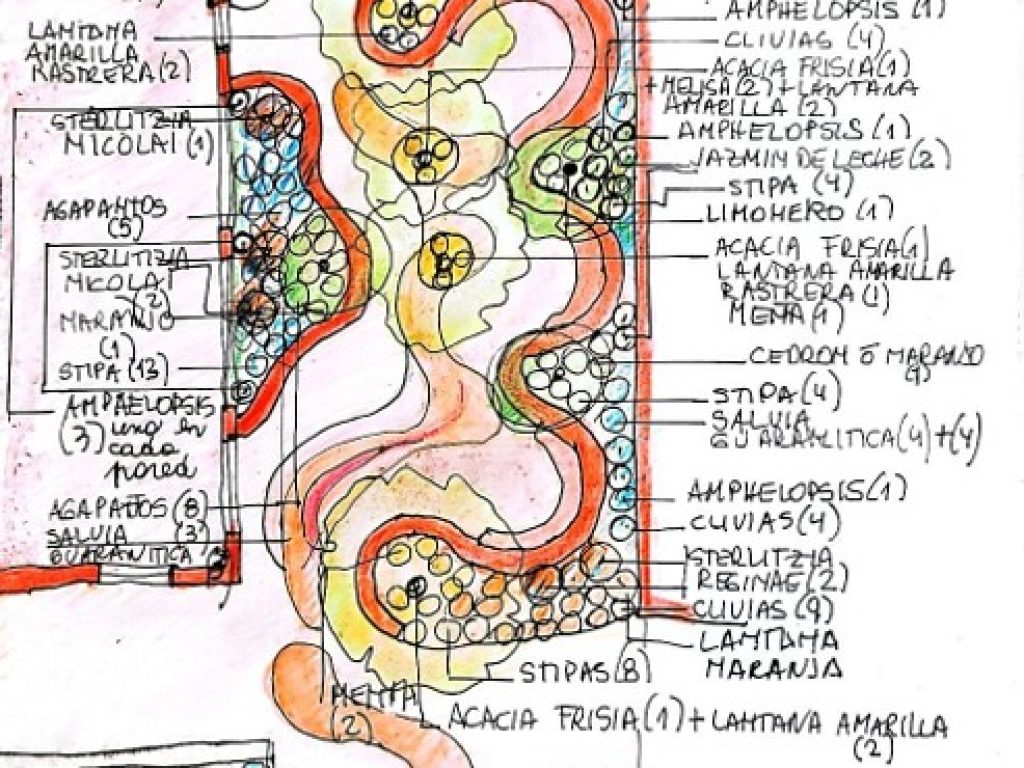 LANTANA
AMARILLA
RASTRERA (2)
STERLITZIA
NICOLAI (1)
AGAPANTOS
(5)
STERLITIZIA
NICOLAI
(2)
NARANJO
(1)
STIPA (13)
AMPHELOPSIS
(3) uno en
cada
pared
AGAPATJOS (8)
SALVIA (3)
GUARANITICA
MENTA
(2)
AMPHELOPSIS (1)
CLIVIAS (4)
ACACIA FRISIA (1)
+ MELISA (2) + LANTANA
AMARILLA (2)
AMPHELOPSIS (1)
JAZMIN DE LECHE (2)
STIPA (4)
LIMONERO (1)
ACACIA FRISIA (1)
LANTANA AMARILLA
RASTRERA (1)
MENTA (1)
CEDRON Ó NARANJO
(1)
STIPA (4)
SALVIA
GUARANITICA (4) + (4)
AMPHELOPSIS (1)
CLIVIAS (4)
STERLITZIA
REGINAE (2)
CLIVIAS (9)
LANTANA
NARANJA
STIPAS (8)
ACACIA FRISIA (1) + LANTANA AMARILLA
(2)